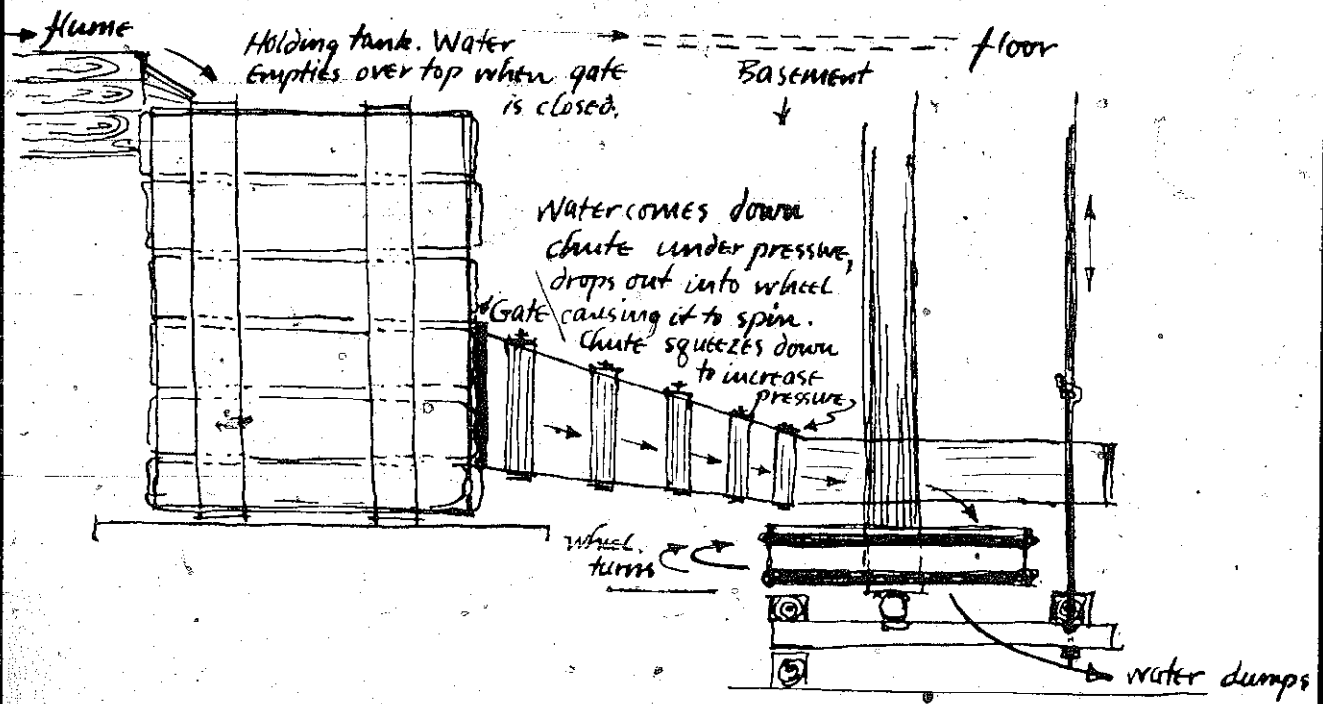 flume
Holding tank. Water
Empties over top when gate
is closed.
floor
Basement
Water comes down
chute under pressure,
drops out into wheel
causing it to spin.
Gate
Chute squeezes down
to increase
pressure
wheel
turns
water dumps